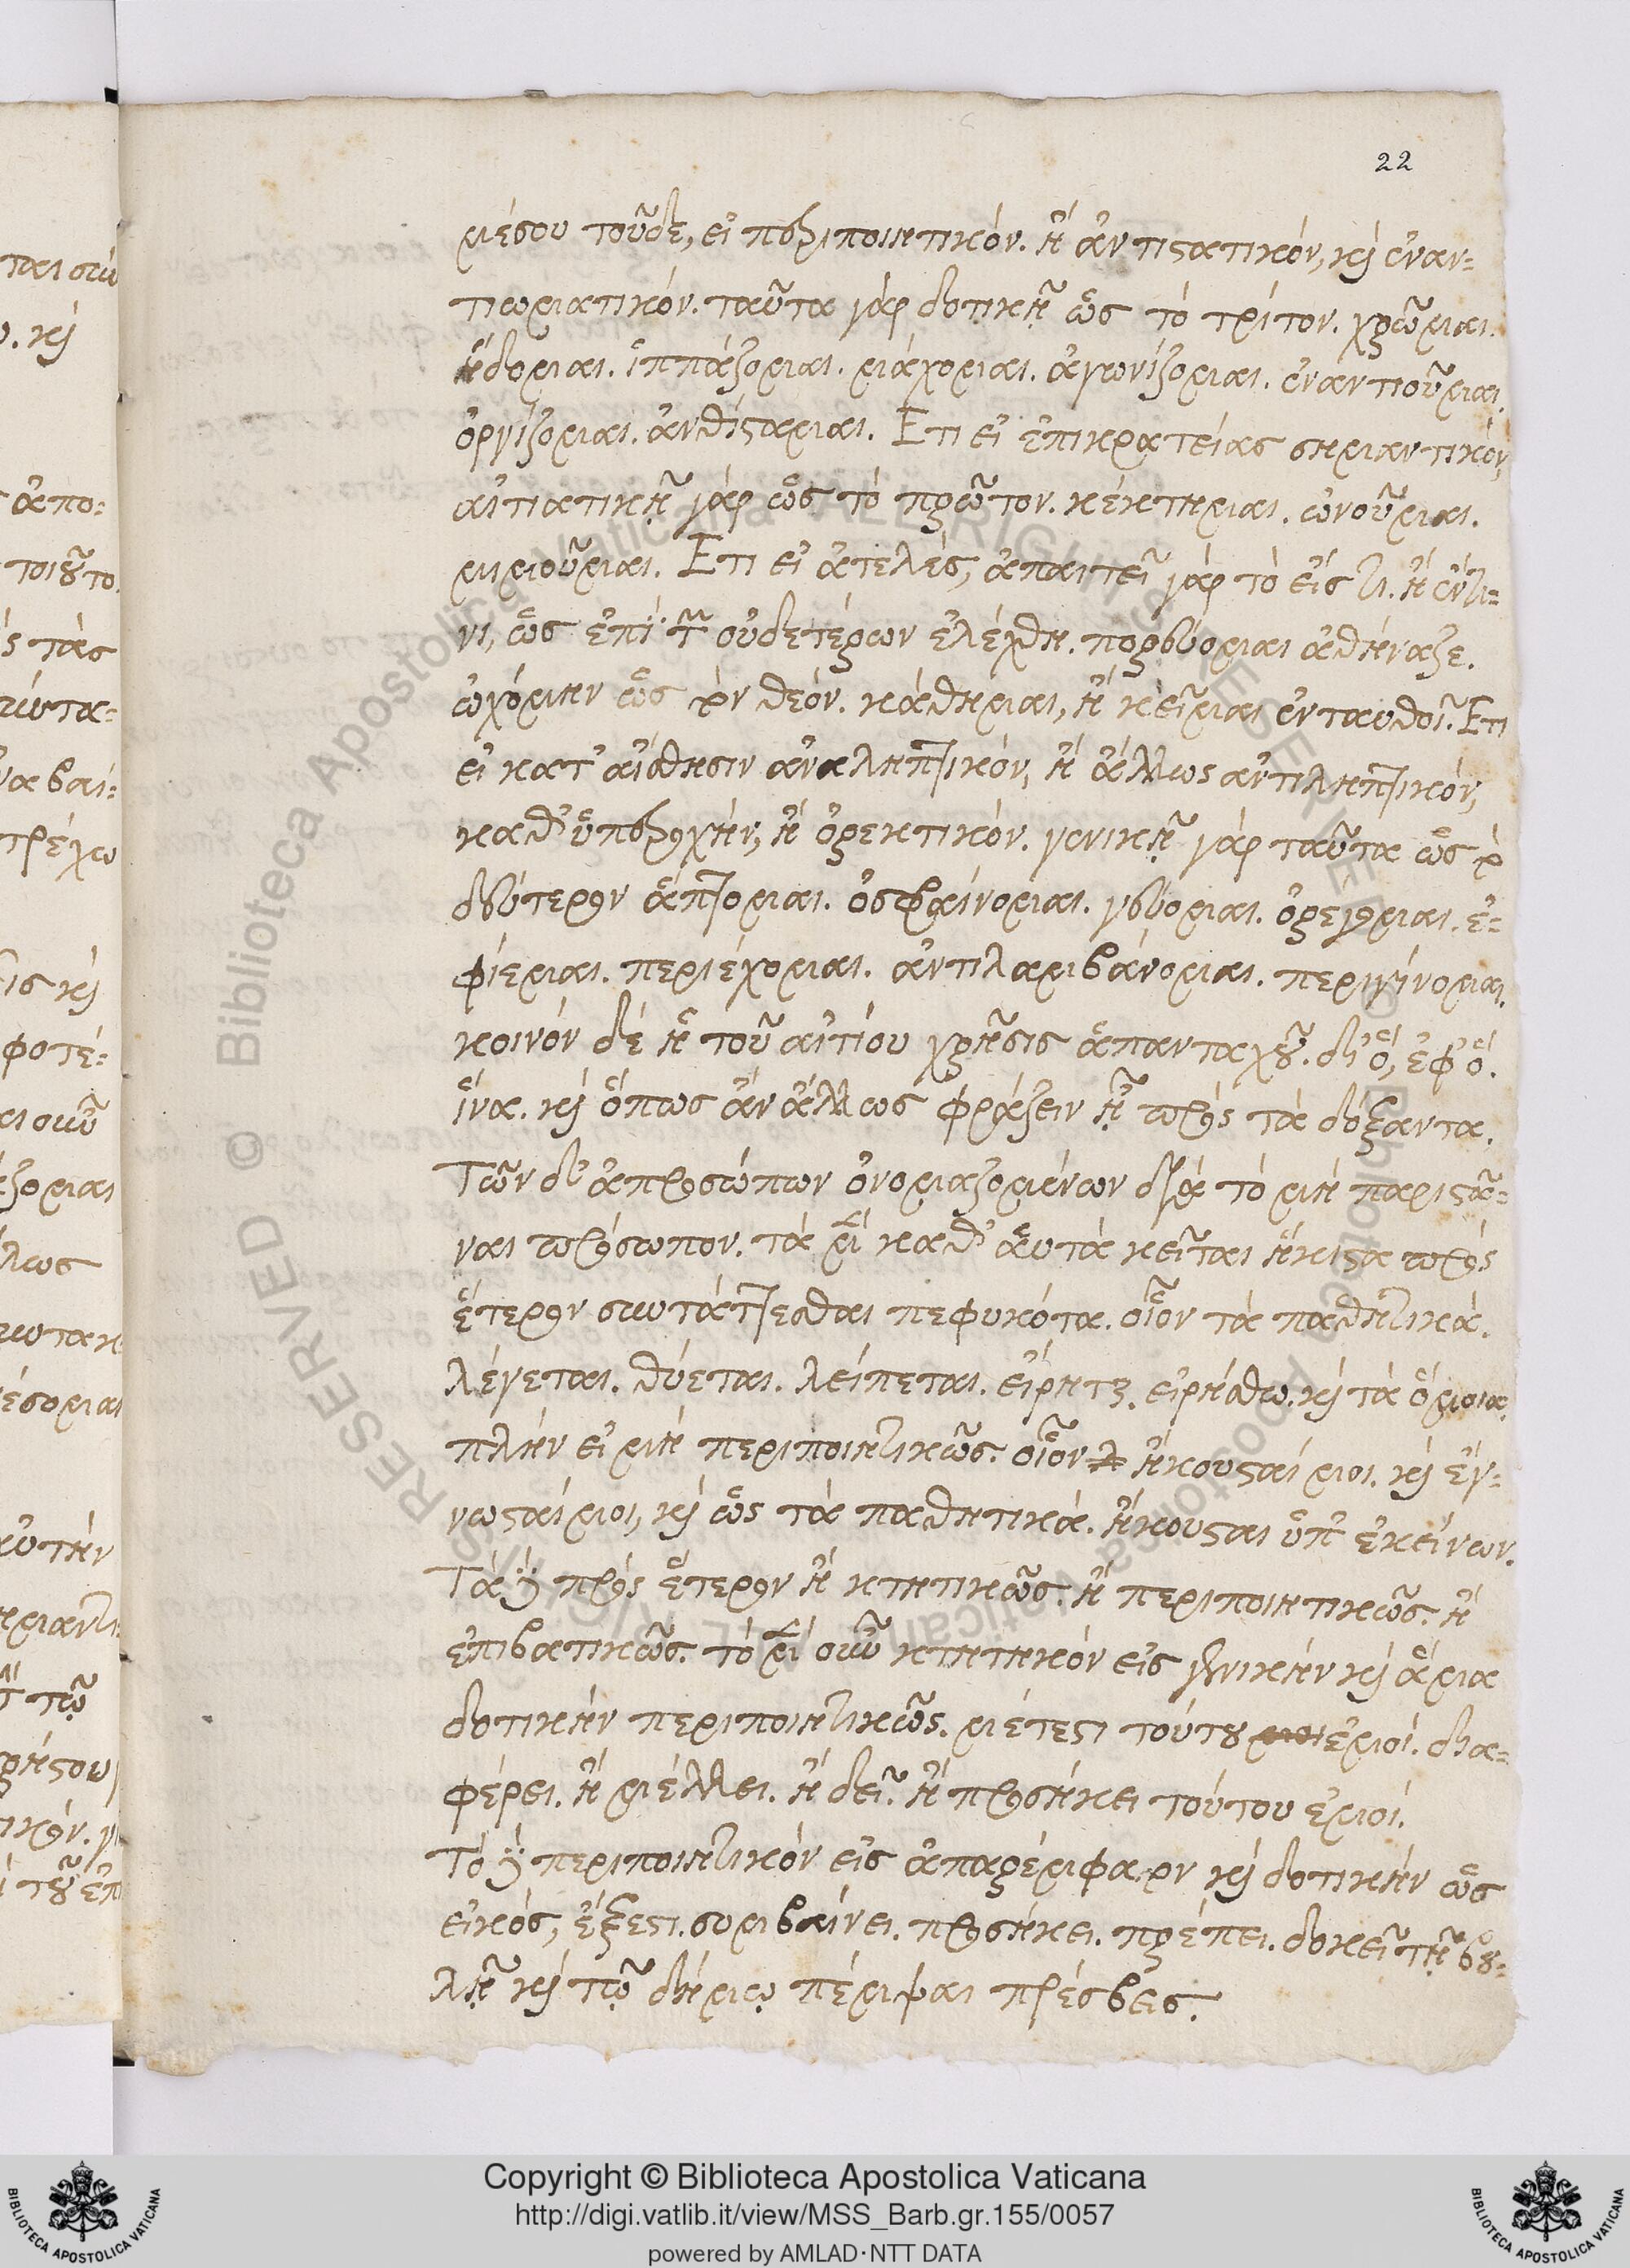 22
μέσου τοῦδε, εἰ περιποιητικόν. ἢ ἀντιστατικόν, καὶ ἐναν-
τιωματικόν. ταῦτα γὰρ δοτικῇ ὡς τὸ τρίτον. χρῶμαι.
ἥδομαι. ἱππάζομαι. μάχομαι. ἀγωνίζομαι. ἐναντιοῦμαι.
ὀργίζομαι. ἀνθίσταμαι. Ἔτι εἰ ἐπικρατείας σημαντικόν,
αἰτιατικῇ γὰρ ὡς τὸ πρῶτον. κέκτημαι. ὠνοῦμαι.
μιμοῦμαι. Ἔτι εἰ ἀτελές, ἀπαιτεῖ γὰρ τὸ εἴς τι. ἢ ἔν τι-
νι, ὡς ἐπὶ τῶν οὐδετέρων ἐλέχθη. πορεύομαι ἀθήναζε.
ᾠχόμην ὡς τὸν θεόν. κάθημαι, ἢ κεῖμαι ἐνταυθοῖ. Ἔτι
εἰ κατ' αἴσθησιν ἀναληπτικόν, ἢ ἄλλως ἀντιληπτικόν,
καθ' ὑπεροχήν, ἢ ὀρεκτικόν. γενικῇ γὰρ ταῦτα ὡς τὸ
δεύτερον ἅπτομαι. ὀσφραίνομαι. γεύομαι. ὀρέγομαι. ἐ-
φίεμαι. περιέχομαι. ἀντιλαμβάνομαι. περιγίνομαι.
κοινὸν δὲ ἡ τοῦ αἰτίου χρῆσις ἁπανταχοῦ. δι' ὅ, ἐφ' ὅ.
ἵνα. καὶ ὅπως ἂν ἄλλως φράζειν ᾖ πρὸς τὰ δόξαντα.
Τῶν δ' ἀπροσώπων ὀνομαζομένων διὰ τὸ μὴ παριστά-
ναι πρόσωπον. τὰ μὲν καθ' αὑτὰ κεῖται ἥκιστα πρὸς
ἕτερον συντάττεσθαι πεφυκότα. οἷον τὰ παθητικά.
λέγεται. θύεται. λείπεται. εἴρηται. εἰρήσθω. καὶ τὰ ὅμοια.
πλὴν εἰ μὴ περιποιητικῶς. οἷον ἤκουσταί μοι. καὶ ἔγ-
νωσταί μοι, καὶ ὡς τὰ παθητικά. ἤκουσται ὑπ' ἐκείνων.
Τὰ δὲ πρὸς ἕτερον ἢ κτητικῶς. ἢ περιποιητικῶς. ἢ
ἐπιβατικῶς. τὸ μὲν οὖν κτητηκόν εἰς γενικὴν καὶ ἅμα
δοτικὴν περιποιητικῶς. μέτεστι τούτου ἐμοί. δια-
φέρει. ἢ μέλλει. ἢ δεῖ. ἢ προσήκει τούτου ἐμοί.
Τὸ δὲ περιποιητικὸν εἰς ἀπαρέμφατον καὶ δοτικὴν ὡς
εἰκός, ἔξεστι. συμβαίνει. προσήκει. πρέπει. δοκεῖ τῇ βου-
λῇ καὶ τῷ δήμῳ πέμψαι πρέσβεις.
Copyright © Biblioteca Apostolica Vaticana
http://digi.vatlib.it/view/MSS_Barb.gr.155/0057
powered by AMLAD·NTT DATA